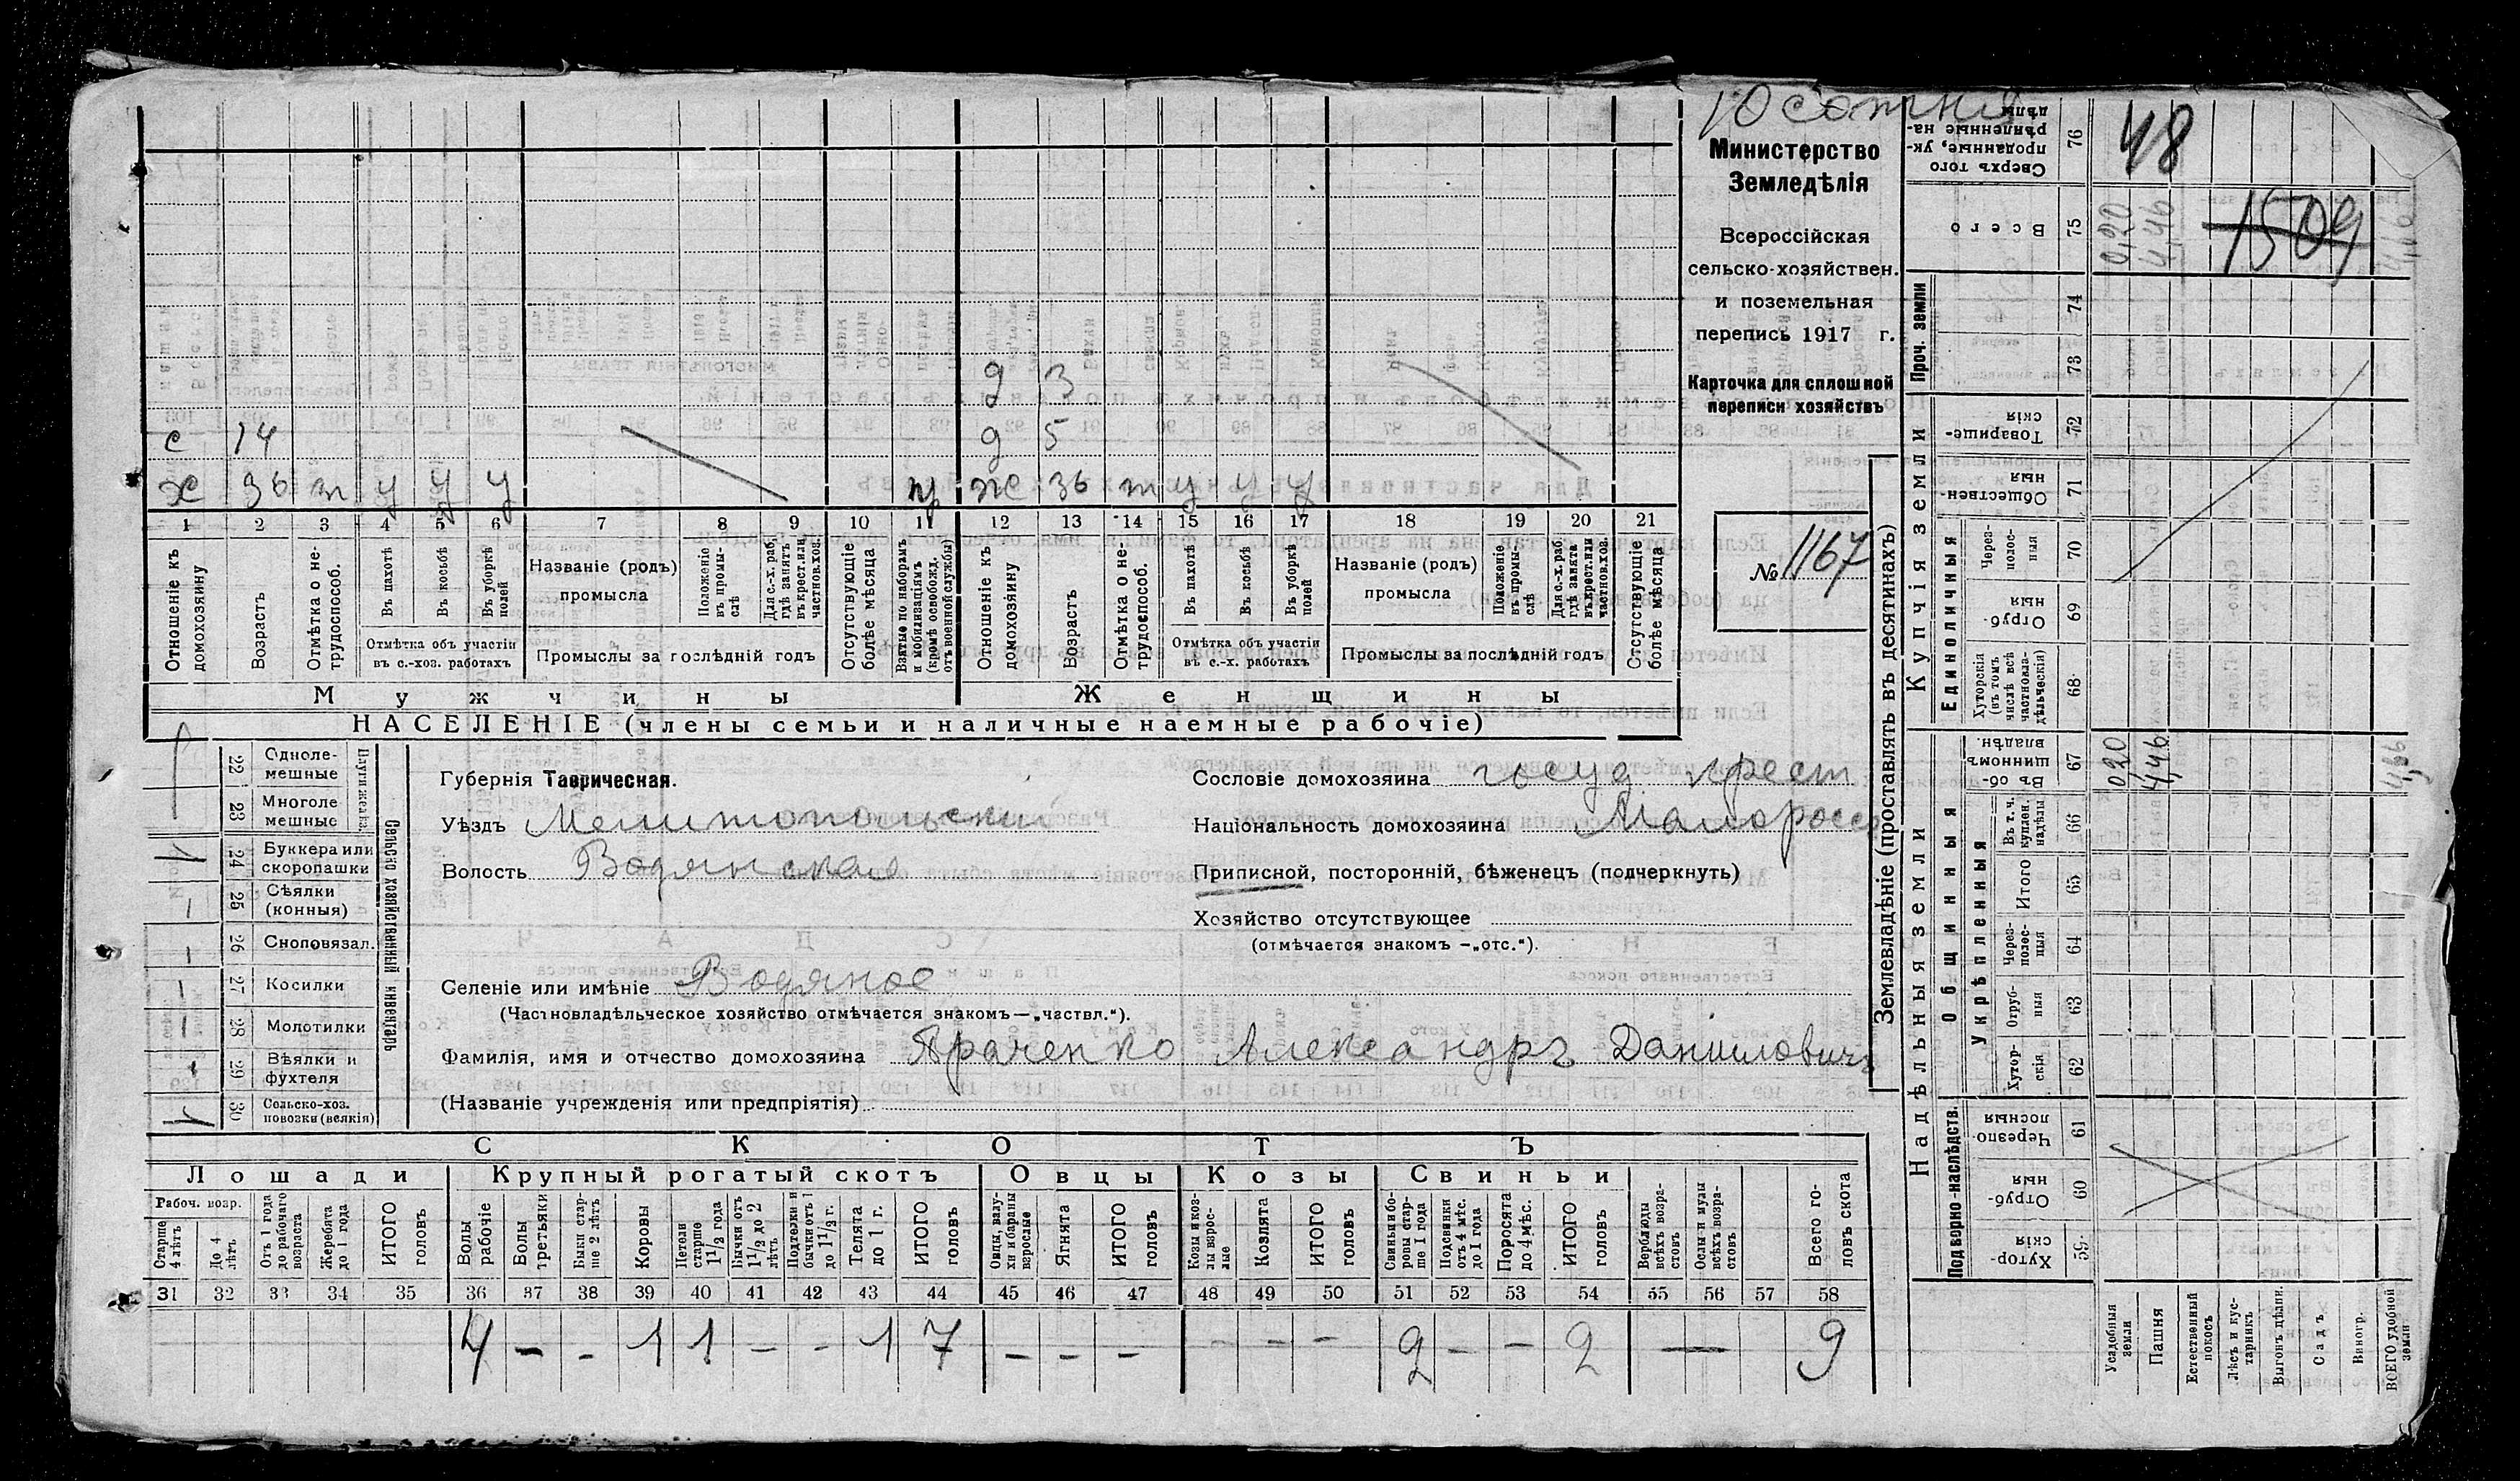 10 сотня
Министерство
Земледѣлія
Всероссійская
сельско-хозяйствен.
и поземельная
перепись 1917 г.
Карточка для сплошной
переписи хозяйствъ
№ 1167
д 3
с 14 д 5
х 36 т у у у у ж 36 т у у у
1 2 3 4 5 6 7 8 9 10 11 12 13 14 15 16 17 18 19 20 21
Отношеніе къ домохозяину
Возрастъ
Отмѣтка о не-трудоспособ.
Въ пахотѣ
Въ косьбѣ
Въ уборкѣ полей
Отмѣтка объ участіи въ с.-хоз. работахъ
Названіе (родъ) промысла
Положеніе въ промы-слѣ
Для с.-х. раб. гдѣ занятъ въ крест. или частнов. хоз.
Промыслы за послѣдній годъ
Отсутствующіе болѣе мѣсяца
Взятые по наборамъ и мобилизаціямъ (кромѣ освобожд. отъ военной службы)
Отношеніе къ домохозяину
Возрастъ
Отмѣтка о не-трудоспособ.
Въ пахотѣ
Въ косьбѣ
Въ уборкѣ полей
Отмѣтка объ участіи въ с.-х. работахъ
Названіе (родъ) промысла
Положеніе въ промы-слѣ
Для с.-х. раб. гдѣ занята въ крест. или частнов. хоз.
Промыслы за послѣдній годъ
Отсутствующіе болѣе мѣсяца
Мужчины Женщины
НАСЕЛЕНІЕ (члены семьи и наличные наемные рабочіе)
Сельско хозяйственный инвентарь
Плуги желѣз.
22 Одноле-мешные
23 Многоле мешные
24 Буккера или скоропашки 1
25 Сѣялки (конныя) –
26 Сноповязал. –
27 Косилки –
28 Молотилки –
29 Вѣялки и фухтеля
30 Сельско-хоз. повозки (всякія) 1
Губернія Таврическая.
Уѣздъ Мелитопольскій
Волость Водянская
Сословіе домохозяина госуд крест
Національность домохозяина Малоросс
Приписной, посторонній, бѣженецъ (подчеркнуть)
Хозяйство отсутствующее
(отмѣчается знакомъ –„отс.“).
Селеніе или имѣніе Водяное
(Частновладѣльческое хозяйство отмѣчается знакомъ—„частвл.“).
Фамилія, имя и отчество домохозяина Яраченко Александръ Даниловичъ
(Названіе учрежденія или предпріятія)
СКОТЪ
Лошади Крупный рогатый скотъ Овцы Козы Свиньи
Рабоч. возр.
Старше 4 лѣтъ
До 4 лѣтъ
Отъ 1 года до рабочаго возраста
Жеребята до 1 года
ИТОГО головъ
Волы рабочіе
Волы третьяки
Быки стар-ше 2 лѣтъ
Коровы
Нетели старше 1 1/2 года
Бычки отъ 1 1/2 до 2 лѣтъ
Подтелки и бычки отъ 1 до 1 1/2 г.
Телята до 1 г.
ИТОГО головъ
Овцы, валу-хи и бараны взрослые
Ягнята
ИТОГО головъ
Козы и коз-лы взрос-лые
Козлята
ИТОГО головъ
Свиньи и бо-ровы стар-ше 1 года
Подсвинки отъ 4 мѣс. до 1 года
Поросята до 4 мѣс.
ИТОГО головъ
Верблюды всѣхъ возра-стовъ
Ослы и мулы всѣхъ возра-стовъ
Всего го-ловъ скота
31 32 33 34 35 36 37 38 39 40 41 42 43 44 45 46 47 48 49 50 51 52 53 54 55 56 57 58
4 – – 1 1 – – 1 7 – – – – – – 2 – – 2 — 9
Землевладѣніе (проставлять въ десятинахъ)
Надѣльныя земли Купчія земли Проч. земли
Подворно-наслѣдств. Общинныя Единоличныя
Укрѣпленныя
Сверхъ того проданные, ук-рѣпленные на-дѣлы 76 48
Всего 75 0,20 4,46 1509
74
73
Товарище-скія 72
Обществен-ныя 71
Через-полос-ныя 70
Отруб-ныя 69
Хуторскія (въ томъ числѣ всѣ частновла-дѣльческія) 68
Въ об-щинномъ владѣн. 67 0,20 4,46
Въ т. ч. куплен. надѣлы 66
Итого 65
Через-полос-ныя 64
Отруб-ныя 63
Хутор-скія 62
Черезпо-лосныя 61
Отруб-ныя 60
Хутор-скія 59
Усадебныя земли
Пашня
Естественный покосъ
Лѣсъ и кус-тарникъ
Выгонъ дѣлим.
Садъ
Виногр.
ВСЕГО удобной земли